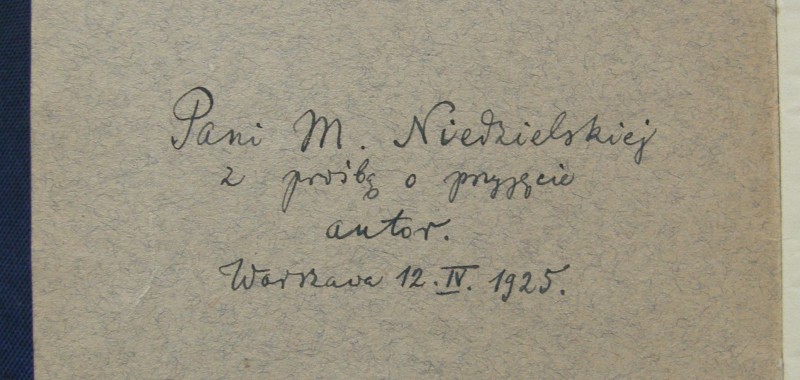 Pani M. Niedzielskiej
z prośbą o przyjęcie
autor.
Warszawa 12.IV.1925.